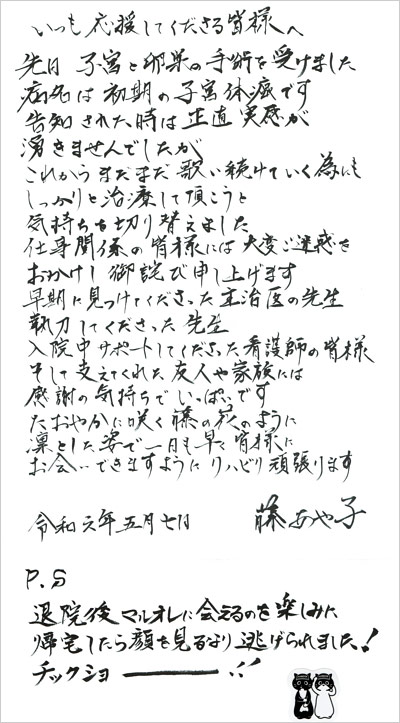 いつも応援してくださる皆様へ
先日 子宮と卵巣の手術を受けました
病名は初期の子宮体癌です
告知された時は正直実感が
湧きませんでしたが
これからまだまだ歌い続けていく為にも
しっかりと治療して頂こうと
気持ちを切り替えました
仕事関係の皆様には大変ご迷惑を
おかけし御詫び申し上げます
早期に見つけてくださった主治医の先生
執刀してくださった先生
入院中サポートしてくださった看護師の皆様
そして支えてくれた友人や家族には
感謝の気持ちでいっぱいです
たおやかに咲く藤の花のように
凛とした姿で一日も早く皆様に
お会いできますようにリハビリ頑張ります
令和元年五月七日 藤あや子
P.S
退院後マルオレに会えるのを楽しみに
帰宅したら顔を見るなり逃げられました!
チックショーーー!!